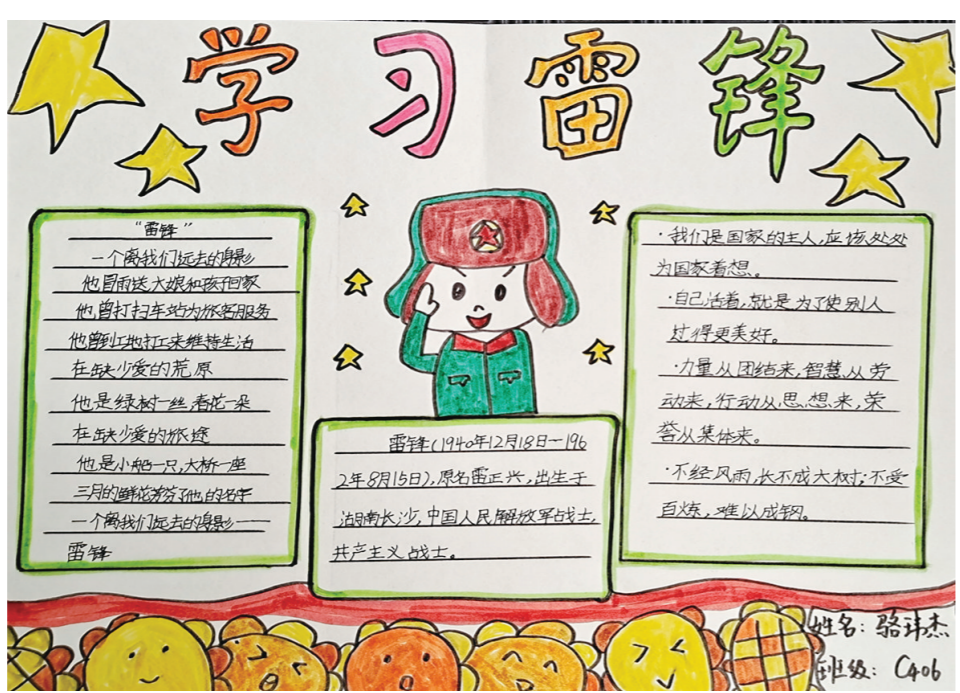 学习雷锋
“雷锋”
一个离我们远去的身影
他冒雨送大娘和孩子回家
他曾打扫车站为旅客服务
他曾到工地打工来维持生活
在缺少爱的荒原
他是绿树一丝,春花一朵
在缺少爱的旅途
他是小船一只,大桥一座
三月的鲜花芬芳了他的名字
一个离我们远去的身影——
雷锋
雷锋(1940年12月18日—196
2年8月15日),原名雷正兴,出生于
湖南长沙,中国人民解放军战士,
共产主义战士。
·我们是国家的主人,应该处处
为国家着想。
·自己活着,就是为了使别人
过得更美好。
·力量从团结来,智慧从劳
动来,行动从思想来,荣
誉从集体来。
·不经风雨,长不成大树;不受
百炼,难以成钢。
姓名:骆玮杰
班级:C406